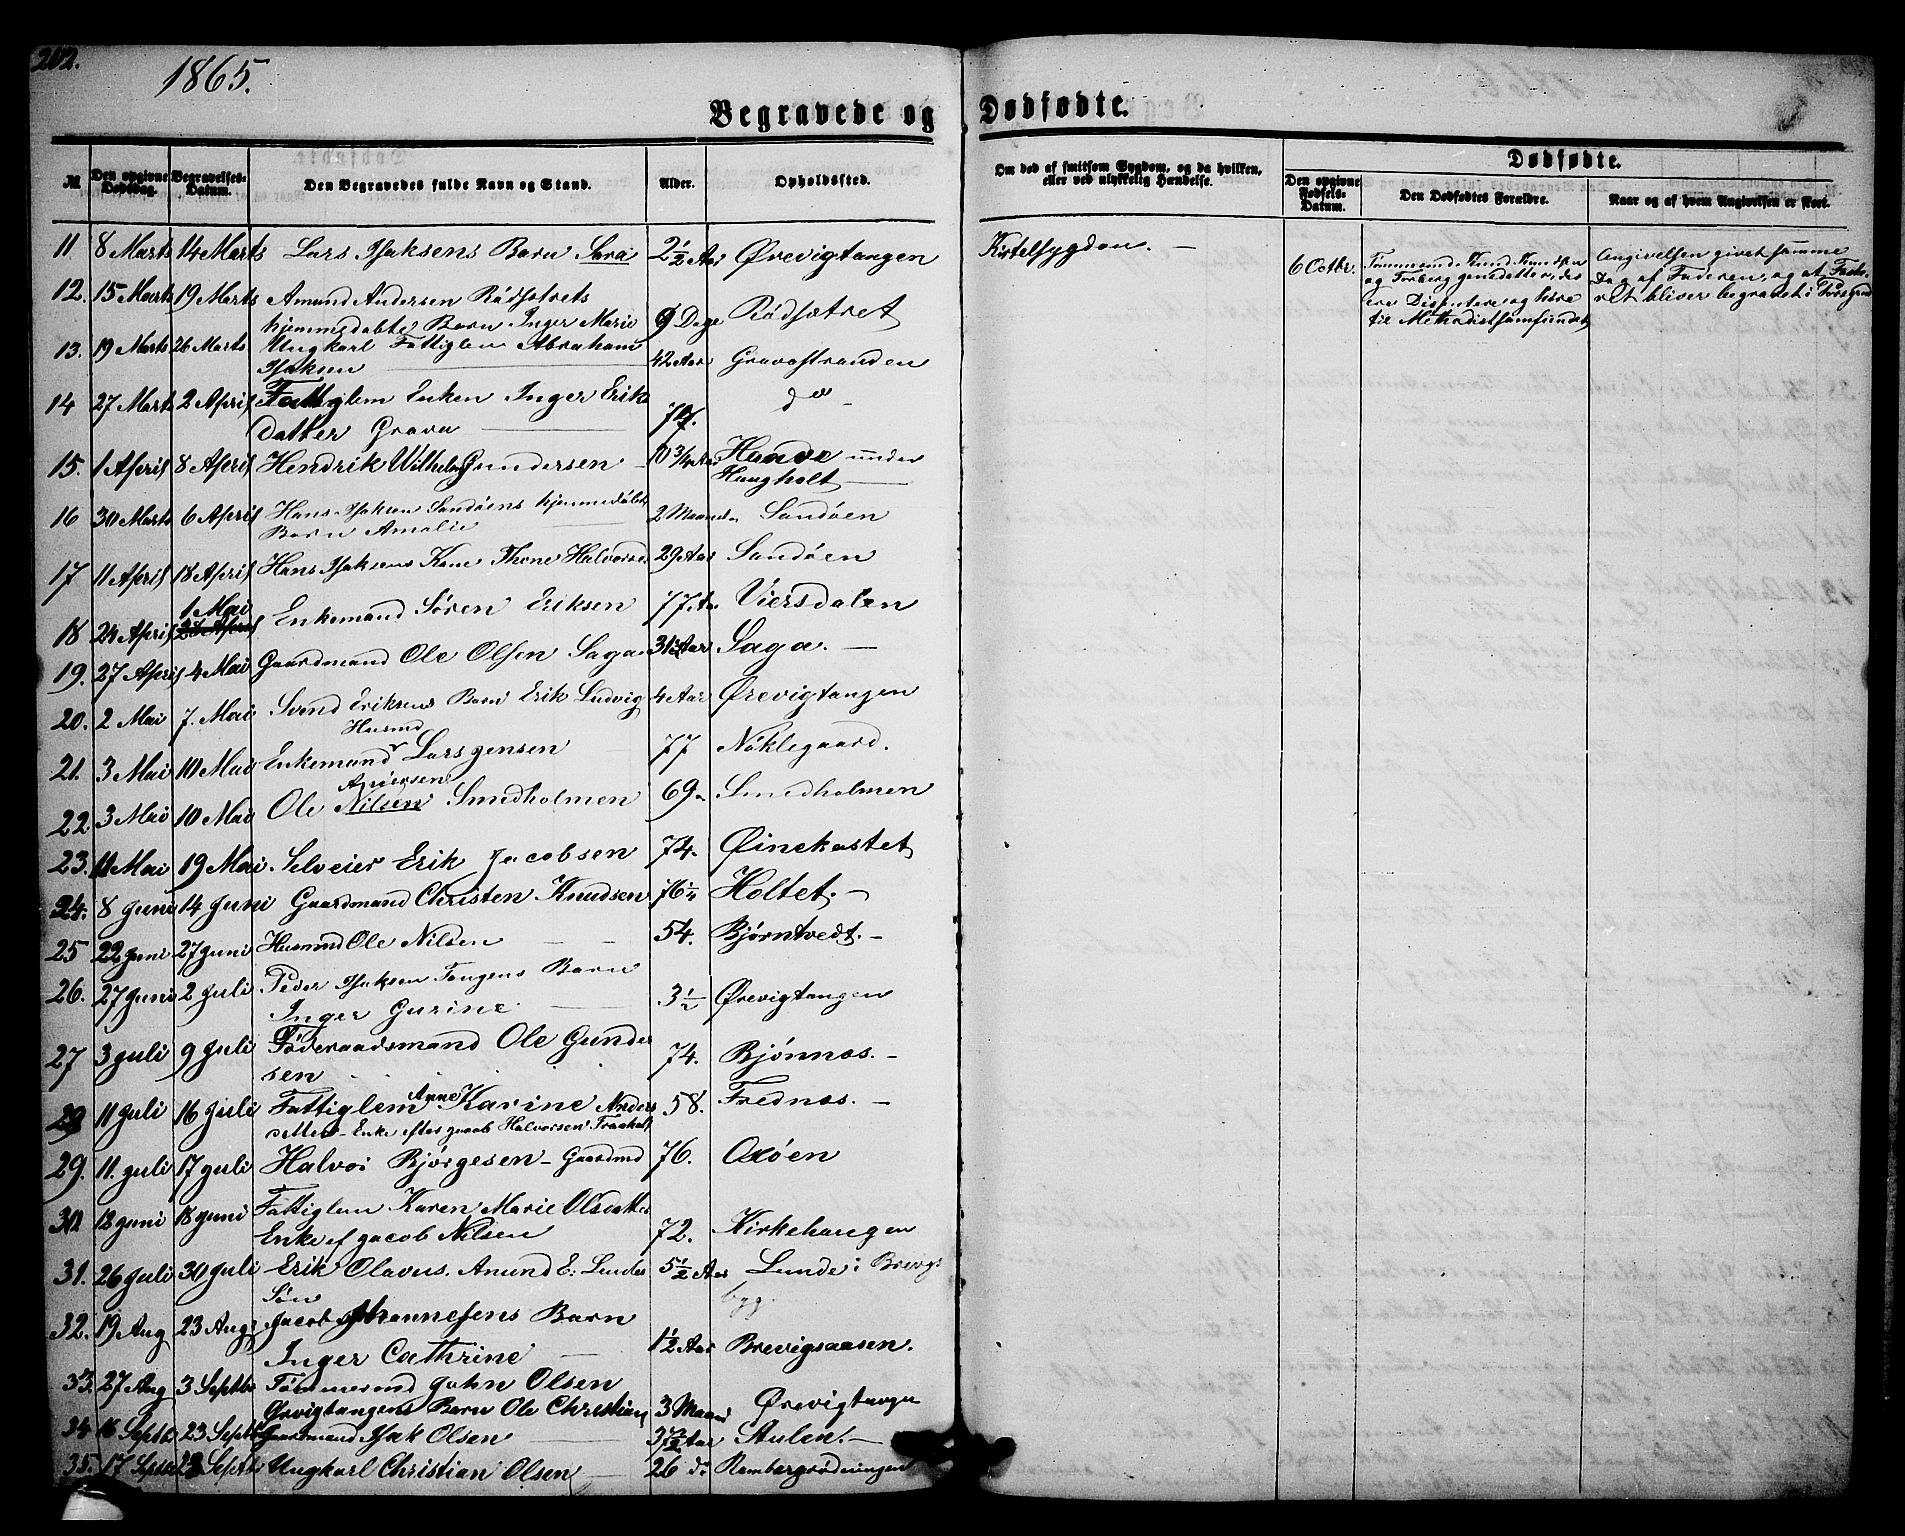 202.
1865.
Begravede og Dødfødte.
№ Den opgivne Dødsdag. Begravelses-Datum. Den Begravedes fulde Navn og Stand. Alder. Opholdssted. Om død af smitsom Sygdom, og da hvilken, eller ved ulykkelig Hændelse. Dødfødte.
Den opgivne Fødsels-Datum. Den Dødfødtes Forældre. Naar og af hvem Angivelsen er skeet.
11 8 Marts 14 Marts Lars Isaksens Barn Sara 2½ Aar Ørevigtangen Kirtelsygdom. —
12. 15 Marts 19 Marts Amund Andersen Rødsætrets
hjemmedøbte Barn Inger Marie 9 Dage Rødsætret
13. 19 Marts 26 Marts Ungkarl Fattiglem Abraham
Isaksen 42 Aar Gravastranden
14 27 Marts 2 April Fattiglem Enken Inger Eriks
datter Grava do
15. 1 April 8 April Hendrik Wilhelm Gundersen 10 3/4 Aar under
Haugholt
16 30 Marts 6 April Hans Isaksen Sandøens hjemmedøbte
Barn Amalie 2 Maaneder Sandøen
17 11 April 18 April Hans Isaksens Kone Thone Halvorsd. 29 Aar Sandøen
18 24 April 1 Mai Enkemand Søren Eriksen 77 Aar Viersdalen
19. 27 April 4 Mai Gaardmand Ole Olsen Saga Saga. —
20. 2 Mai 7. Mai Svend Eriksens Barn Erik Ludvig 4 Aar Ørevigtangen
Husmd
21. 3 Mai 10 Mai Enkemand Lars Jensen 77 Nøklegaard.
Andersen
22 3 Mai 10 Mai Ole Nilsen Smedholmen 69 Smedholmen
23. 11 Mai 19 Mai. Selveier Erik Jacobsen 74. Øinekastet
24. 8 Juni 14 Juni Gaardmand Christen Knudsen 76 Holtet. —
25 22 Juni 27 Juni Husmd Ole Nilsen — — 54. Bjørntvedt. —
26. 27 Juni 2 Juli Peder Isaksen Tangens Barn
Inger Gurine 3½ Ørevigtangen
27 3 Juli 9 Juli Føderaadsmand Ole Gunder
sen 74. Bjønnæs. —
11 Juli 16 Juli Fattiglem Anne Karine Anders
datter Enke efter Jacob Halvorsen 58. Frednæs. —
29. 11. Juli 17 Juli Halvor Bjørgesen — Gaardmd 76. Oxøen
30 12 Juni 18 Juni Fattiglem Karen Marie Olsdatter
Enke ef Jacob Nilsen 72. Kirkehaugen
31. 26 Juli 30 Juli Erik Olavus. Amund E. Lundes
Søn 5½ Aar Lunde i Brevigs
byg.
32. 19 Aug 23 Aug Jacob Johannesens Barn
Inger Cathrine — 1½ Aar Brevigsaasen.
33. 27 Aug 3 Septb Tømmermd John Olsen
Ørvigtangens Barn Ole Christian 3 Maaned Ørevigtangen
34 16 Septb 23 Septb Gaardmand Isak Olsen Aar
35. 17 Septb 23 Septb Ungkarl Christian Olsen — 26 do Rambergrødningen
6 Octbr. Tømmermd. Knud Knudsen
og Forberg
ere Dissentere og høre
til Methodistsamfundet
Angivelsen givet samme
Dag af Faderen, og at Fosteret
bliver begravet i Porsgrund